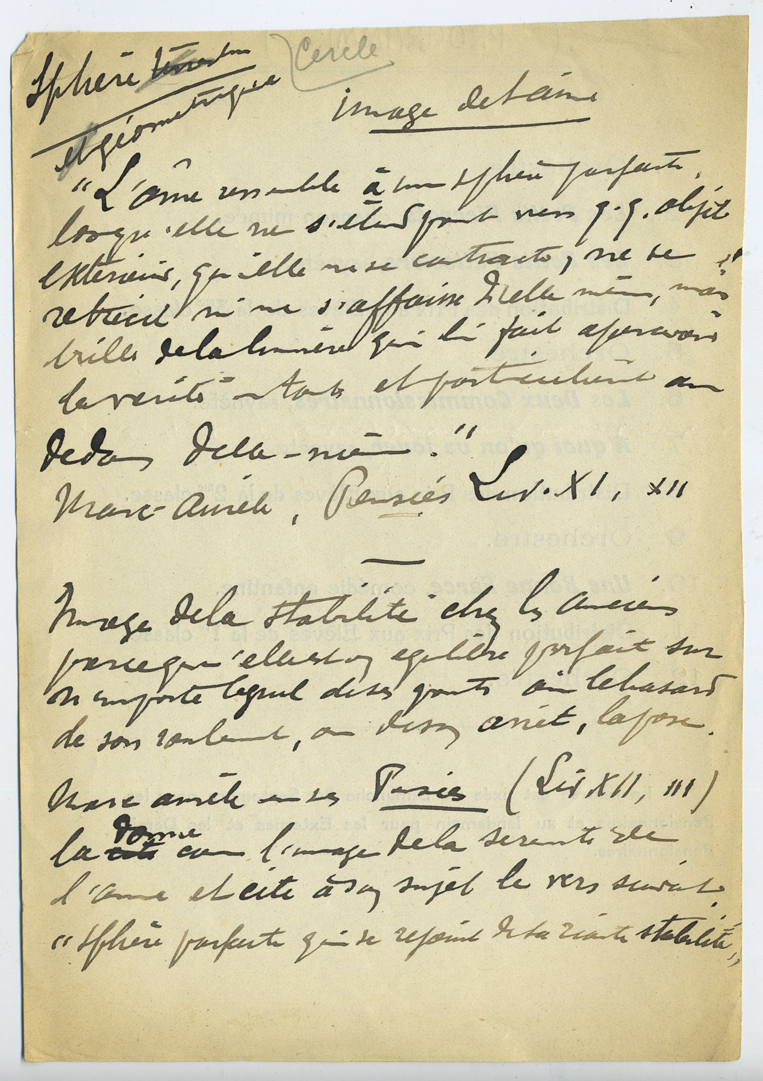 Sphère terrestre
Cercle
et géométrique
Image de l'âme
"L'âme ressemble à une sphère parfaite,
lorsqu'elle ne s'étend point vers q.q. objet
extérieur, qu'elle ne se contracte, ne se
rétrécit ni ne s'affaisse d'elle même, mais
brille de la lumière qui lui fait apercevoir
la vérité en tout et particulièrement au
dedans d'elle-même."
Marc-Aurèle, Pensées Liv. XI, XII
Image de la stabilité chez les anciens
parce qu'elle est en équilibre parfait sur
n'importe lequel de ses points où le hasard
de son roulement, ou de son arrêt, la pose.
Marc Aurèle en ses Pensées (Liv XII, III)
donne
la cite comme l'image de la sérénité de
l'âme et cite à son sujet le vers suivant
"Sphère parfaite qui se réjouit de sa riante stabilité"